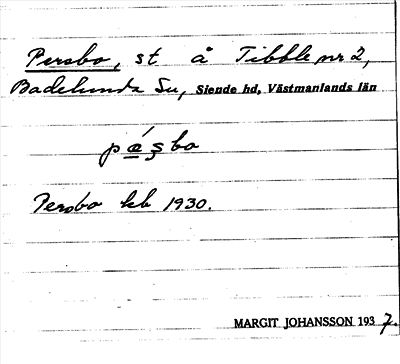 Persbo, st å Tibble nr 2,
Badelunda Sn, Siende hd, Västmanlands län
pæ̀ʂbo
Persbo kb 1930.
MARGIT JOHANSSON 1937.